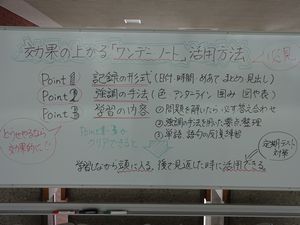 効果の上がる「ワンデーノート」活用方法
必見
Point 1 記録の形式(日付・時間・めあて・まとめ・見出し)
Point 2 強調の手法(色 アンダーライン 囲み 図や表)
Point 3 学習の内容 ①問題を解いたら必ず答え合わせ
②強調の手法を用いた要点整理
③単語、語句の反復練習
とりくせやるなら
効果的に!!
Point 1~3が
クリアできると
定期テスト
対策
学習しながら頭に入る。後で見返した時に活用できる。